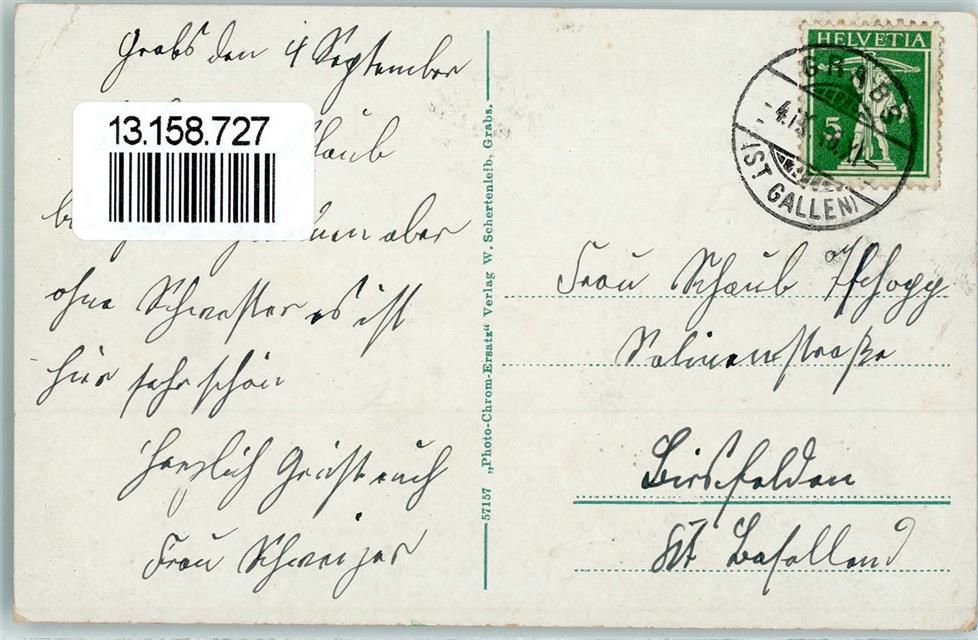 Grabs den 4 September
13.158.727
Schaub
aber
ohne Schwester es ist
hier sehr schön
Herzlich Grüst euch
Frau Schweizer
57157 „Photo-Chrom-Ersatz“ Verlag W. Schertenleib, Grabs.
HELVETIA
5
GRABS
(ST GALLEN)
Frau Schaub Tschopp
Salinenstraße
Birsfelden
Kt Baselland